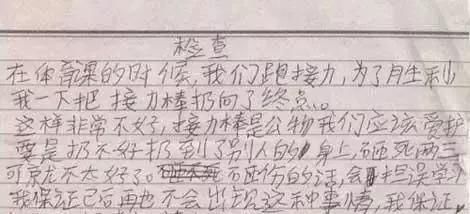 检查
在体育课的时候,我们跑接力,为了月生利
我一下把接力棒扔向了终点。
这样非常不好,接力棒是公物我们应该爱护
要是扔不好扔到了别人的身上,砸死两三
可就不太好了。砸伤的话,会担误学
我保证已后再也不会出现这种事情,我保证